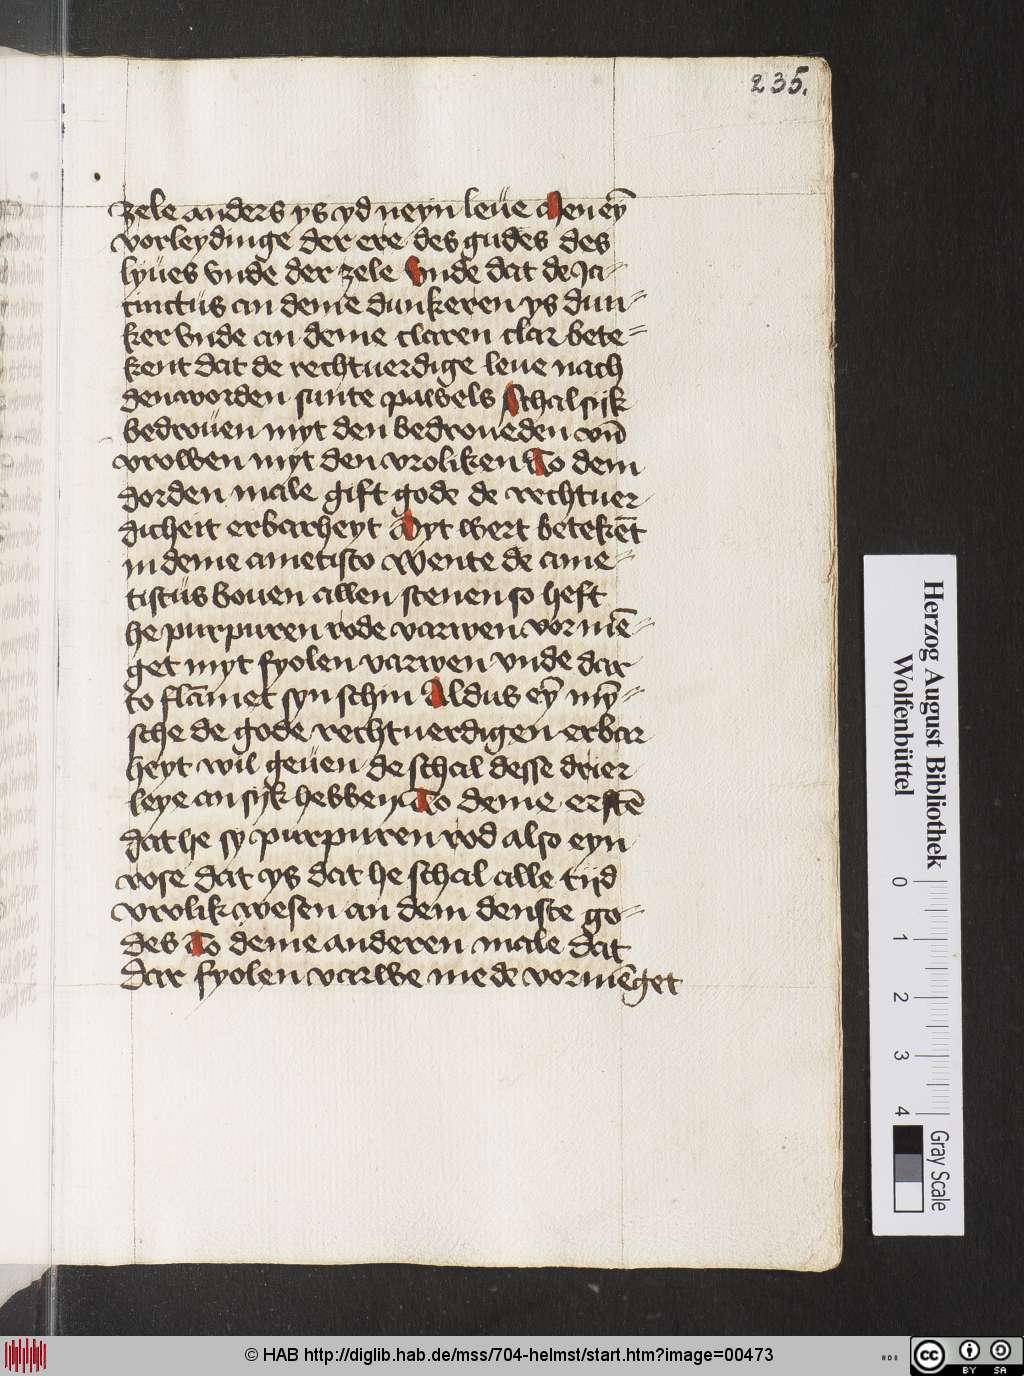 235.
zele anders ys yd neyn leue Men eȳ
vorleydinge der ere des gudes des
lyues vnde der zele Vnde dat de Ja-
cinctus an deme dunkeren ys dun-
ker vnde an deme claren clar bete-
kent dat de rechtuerdige leue nach
den worden sunte pawels Schal sijk
bedrouen myt den bedroueden vn̄
vrowen myt den vroliken To dem
dorden male gift gode de rechtuer
dicheit erbarheyt Dyt wert betekēt
in deme ametisto Wente de ame-
tistus bouen allen stenen so heft
he purpuren rode varwen vor mē-
get myt fyolen varwen vnde dar
to flāmet syn schin Aldus eȳ mȳ-
sche de gode rechtuerdigen erbar
heyt wil geuen de schal desse drier
leye an sijk hebben To deme erstē
dat he sy purpuren rod also eyn
rose dat ys dat he schal alle tijd
vrolik wesen an dem denste go-
des To deme anderen male dat
dar fyolen varwe mede vormēget
Herzog August Bibliothek
Wolfenbüttel
0 1 2 3 4
Gray Scale
© HAB http://diglib.hab.de/mss/704-helmst/start.htm?image=00473
HAB
cc BY SA